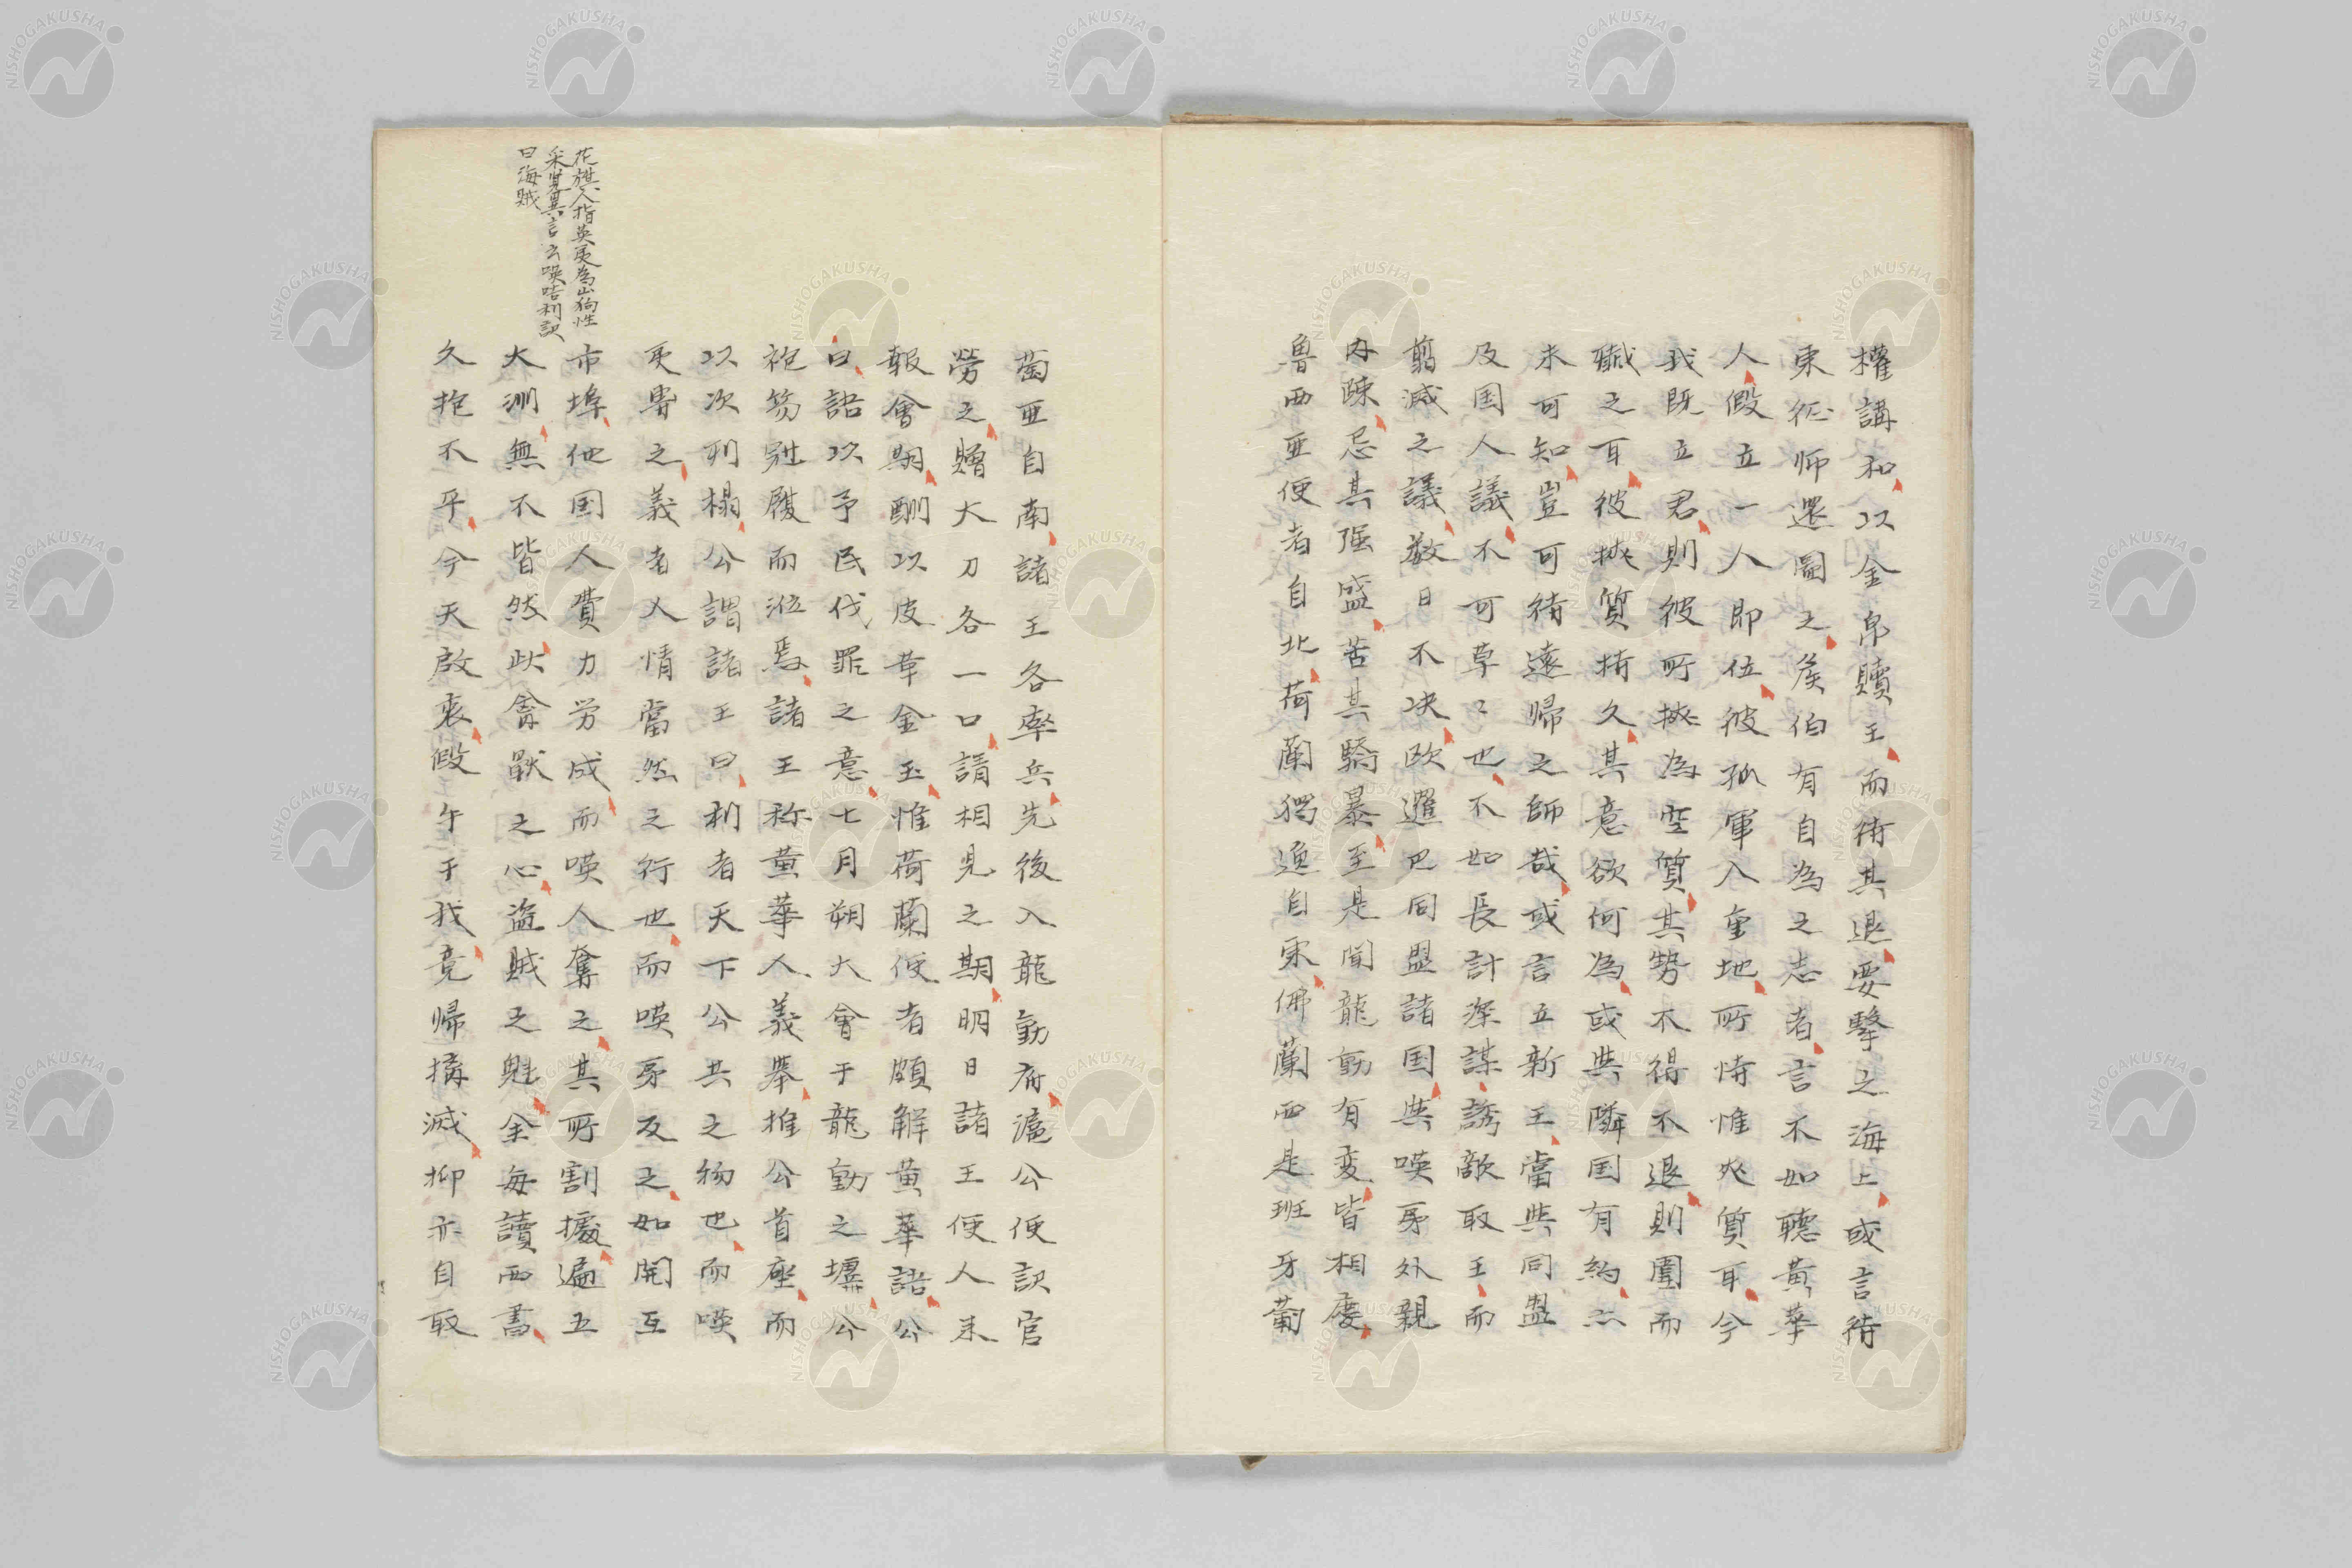 權講和以金帛贖王而待其退要擊之海上或言待
東征師還圖之矦伯有自為之志者言不如聽黃華
人假立一人即位彼孤軍入重地所恃惟此質耳今
我既立君則彼所挾為空質其勢不得不退則圍而
馘之耳彼挾質持久其意欲何為或與隣国有約亦
未可知豈可待遠歸之師哉或言立新王當與同盟
及国人議不可草〻也不如長計深謀誘敵取王而
翦滅之議數日不决欧邏巴同盟諸国與暎夷外親
内疎忌其强盛苦其驕暴至是聞龍動有変皆相慶
魯西亜使者自北荷蘭獨逸自東佛蘭西是班牙葡
萄亜自南諸王各率兵先後入龍動府滬公使訳官
勞之贈大刀各一口請相見之期明日諸王使人来
報會期酬以皮革金玉惟荷蘭使者頗解黄華語公
口語以予民伐罪之意七月朔大會于龍動之壜公
袍笏冠履而涖焉諸王称黄華人義舉推公首座而
以次列榻公謂諸王曰利者天下公共之物也而暎
夷專之義者人情當然之行也而暎夷反之如開互
市埠他国人費力労成而暎人奪之其所割據遍五
大洲無不皆然此禽獣之心盗賊之魁余每讀西書
久抱不平今天啟衷假午于我竟歸擒滅抑亦自取
花旗人指英夷為山狗性
采覧異言云暎咭利訳
曰海賊
NISHOGAKUSHA